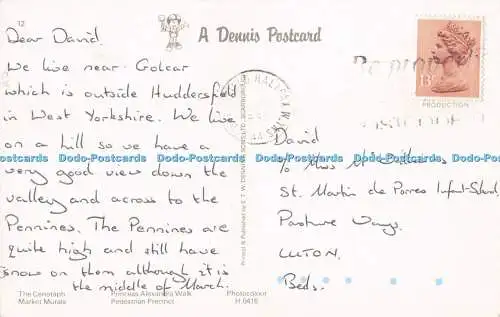 12
A Dennis Postcard
Dear David.
We live near Golcar
which is outside Huddersfield
in West Yorkshire. We live
on a hill so we have a
very good view down the
valley and across to the
Pennines. The Pennines are
quite high and still have
snow on them although it is
the middle of March.
The Cenotaph
Market Murals
Princess Alexandra Walk
Pedestrian Precinct
Photocolour
H 0416
Printed & Published by E. T. W. DENNIS & SONS LTD., SCARBOROUGH
HALIFAX
13
PRODUCTION
David
c/o Miss M
St. Martin de Porres Infant School
Pasture Way,
LUTON.
Beds.
Dodo-Postcards Dodo-Postcards Dodo-Postcards Dodo-Postcards Dodo-Postcards